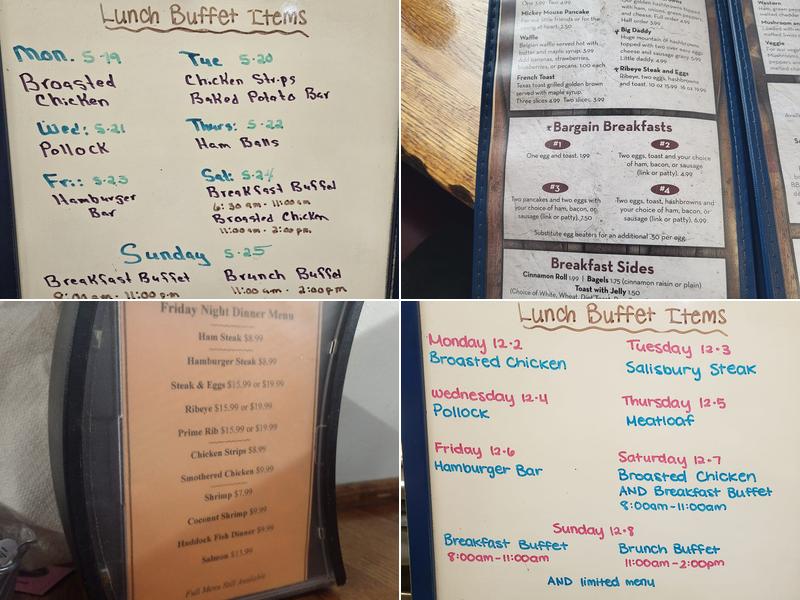 Lunch Buffet Items
Mon. 5-19
Broasted
Chicken
Tue 5-20
Chicken Strips
Baked Potato Bar
Wed: 5-21
Pollock
Thurs: 5-22
Ham Balls
Fri: 5-23
Hamburger
Bar
Sat: 5-24
Breakfast Buffet
6:30am - 11:00am
Broasted Chicken
11:00am - 2:00pm.
Sunday 5-25
Breakfast Buffet
Brunch Buffet
11:00am - 2:00pm
Mickey Mouse Pancake
Waffle
Belgian waffle served hot with
butter and maple syrup. 3.99
Add bananas, strawberries,
blueberries, or pecans. 1.00 each
French Toast
Texas toast grilled golden brown
served with maple syrup.
Three slices 4.99 Two slices. 3.99
Half order 3.99
Big Daddy
Huge mountain of hashbrowns
topped with two over easy eggs
cheese and sausage gravy 5.99
Little daddy. 4.99
Ribeye Steak and Eggs
Ribeye, two eggs, hashbrowns
and toast. 10 oz 15.99 16 oz 19.99
Bargain Breakfasts
#1
One egg and toast. 1.99
#2
Two eggs, toast and your choice
of ham, bacon, or
sausage
(link or patty). 4.99
#3
Two pancakes and two eggs with
your choice of ham, bacon, or
sausage
(link or patty). 7.50
#4
Two eggs, toast, hashbrowns and
your choice of ham, bacon, or
sausage
(link or patty). 6.99
Substitute egg beaters for an additional .50 per egg.
Breakfast Sides
Cinnamon Roll 1.99 | Bagels 1.75 (cinnamon raisin or plain)
Toast with Jelly 1.50
Friday Night Dinner Menu
Ham Steak $8.99
Hamburger Steak $8.99
Steak & Eggs $15.99 or $19.99
Ribeye $15.99 or $19.99
Prime Rib $15.99 or $19.99
Chicken Strips $8.99
Smothered Chicken $9.99
Shrimp $7.99
Coconut Shrimp $9.99
Haddock Fish Dinner $9.99
Salmon $13.99
Full Menu Still Available
Lunch Buffet Items
Monday 12-2
Broasted Chicken
Tuesday 12-3
Salisbury Steak
Wednesday 12-4
Pollock
Thursday 12-5
Meatloaf
Friday 12-6
Hamburger Bar
Saturday 12-7
Broasted Chicken
AND Breakfast Buffet
8:00am-11:00am
Sunday 12-8
Breakfast Buffet
8:00am-11:00am
Brunch Buffet
11:00am-2:00pm
AND limited menu